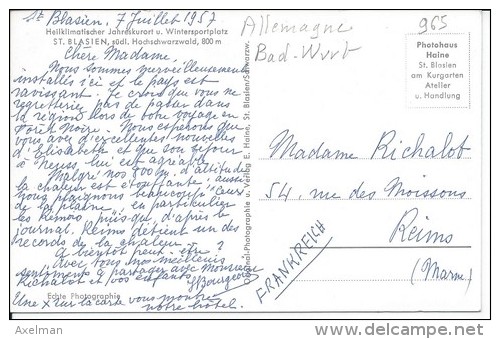 St Blasien, 7 Juillet 1957
Heilklimatischer Jahreskurort u. Wintersportplatz
ST. BLASIEN, südl. Hochschwarzwald, 800 m
Chère Madame,
Nous sommes merveilleusement
installés ici et le pays est
ravissant. Je crois que vous ne
regretteriez pas de passer dans la
région lors de votre voyage en
Forêt Noire. Nous espérons que
vous avez d'excellentes nouvelles
d'Elisabeth et que son séjour
à Neuss lui est agréable.
Malgré nos 800 m. d'altitude
la chaleur est étouffante; aussi
nous plaignons beaucoup ceux
de la plaine, en particulier
les Rémois puisque, d'après le
journal, Reims détient un des
records de la chaleur.
A bientôt peut-être?
Avec tous nos meilleurs
sentiments à partager avec Monsieur
Richalot et vos enfants.
S Bourgeois
Echte Photographie
Une X sur la carte vous montre
notre hôtel.
Original-Photographie u. Verlag E. Haine, St. Blasien/Schwarzw.
Allemagne
Bad-Wurt
965
Photohaus
Haine
St. Blasien
am Kurgarten
Atelier
u. Handlung
Madame Richalot
54, rue des Moissons
Reims
(Marne)
FRANKREICH
Axelman
http://www.delcampe.net